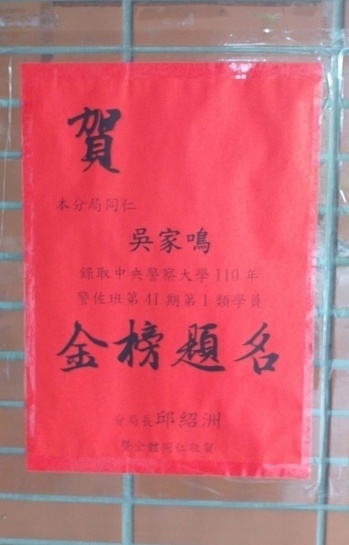 賀
本分局同仁
吳家鳴
錄取中央警察大學110年
警佐班第41期第1類學員
金榜題名
分局長邱紹洲
暨全體同仁敬賀